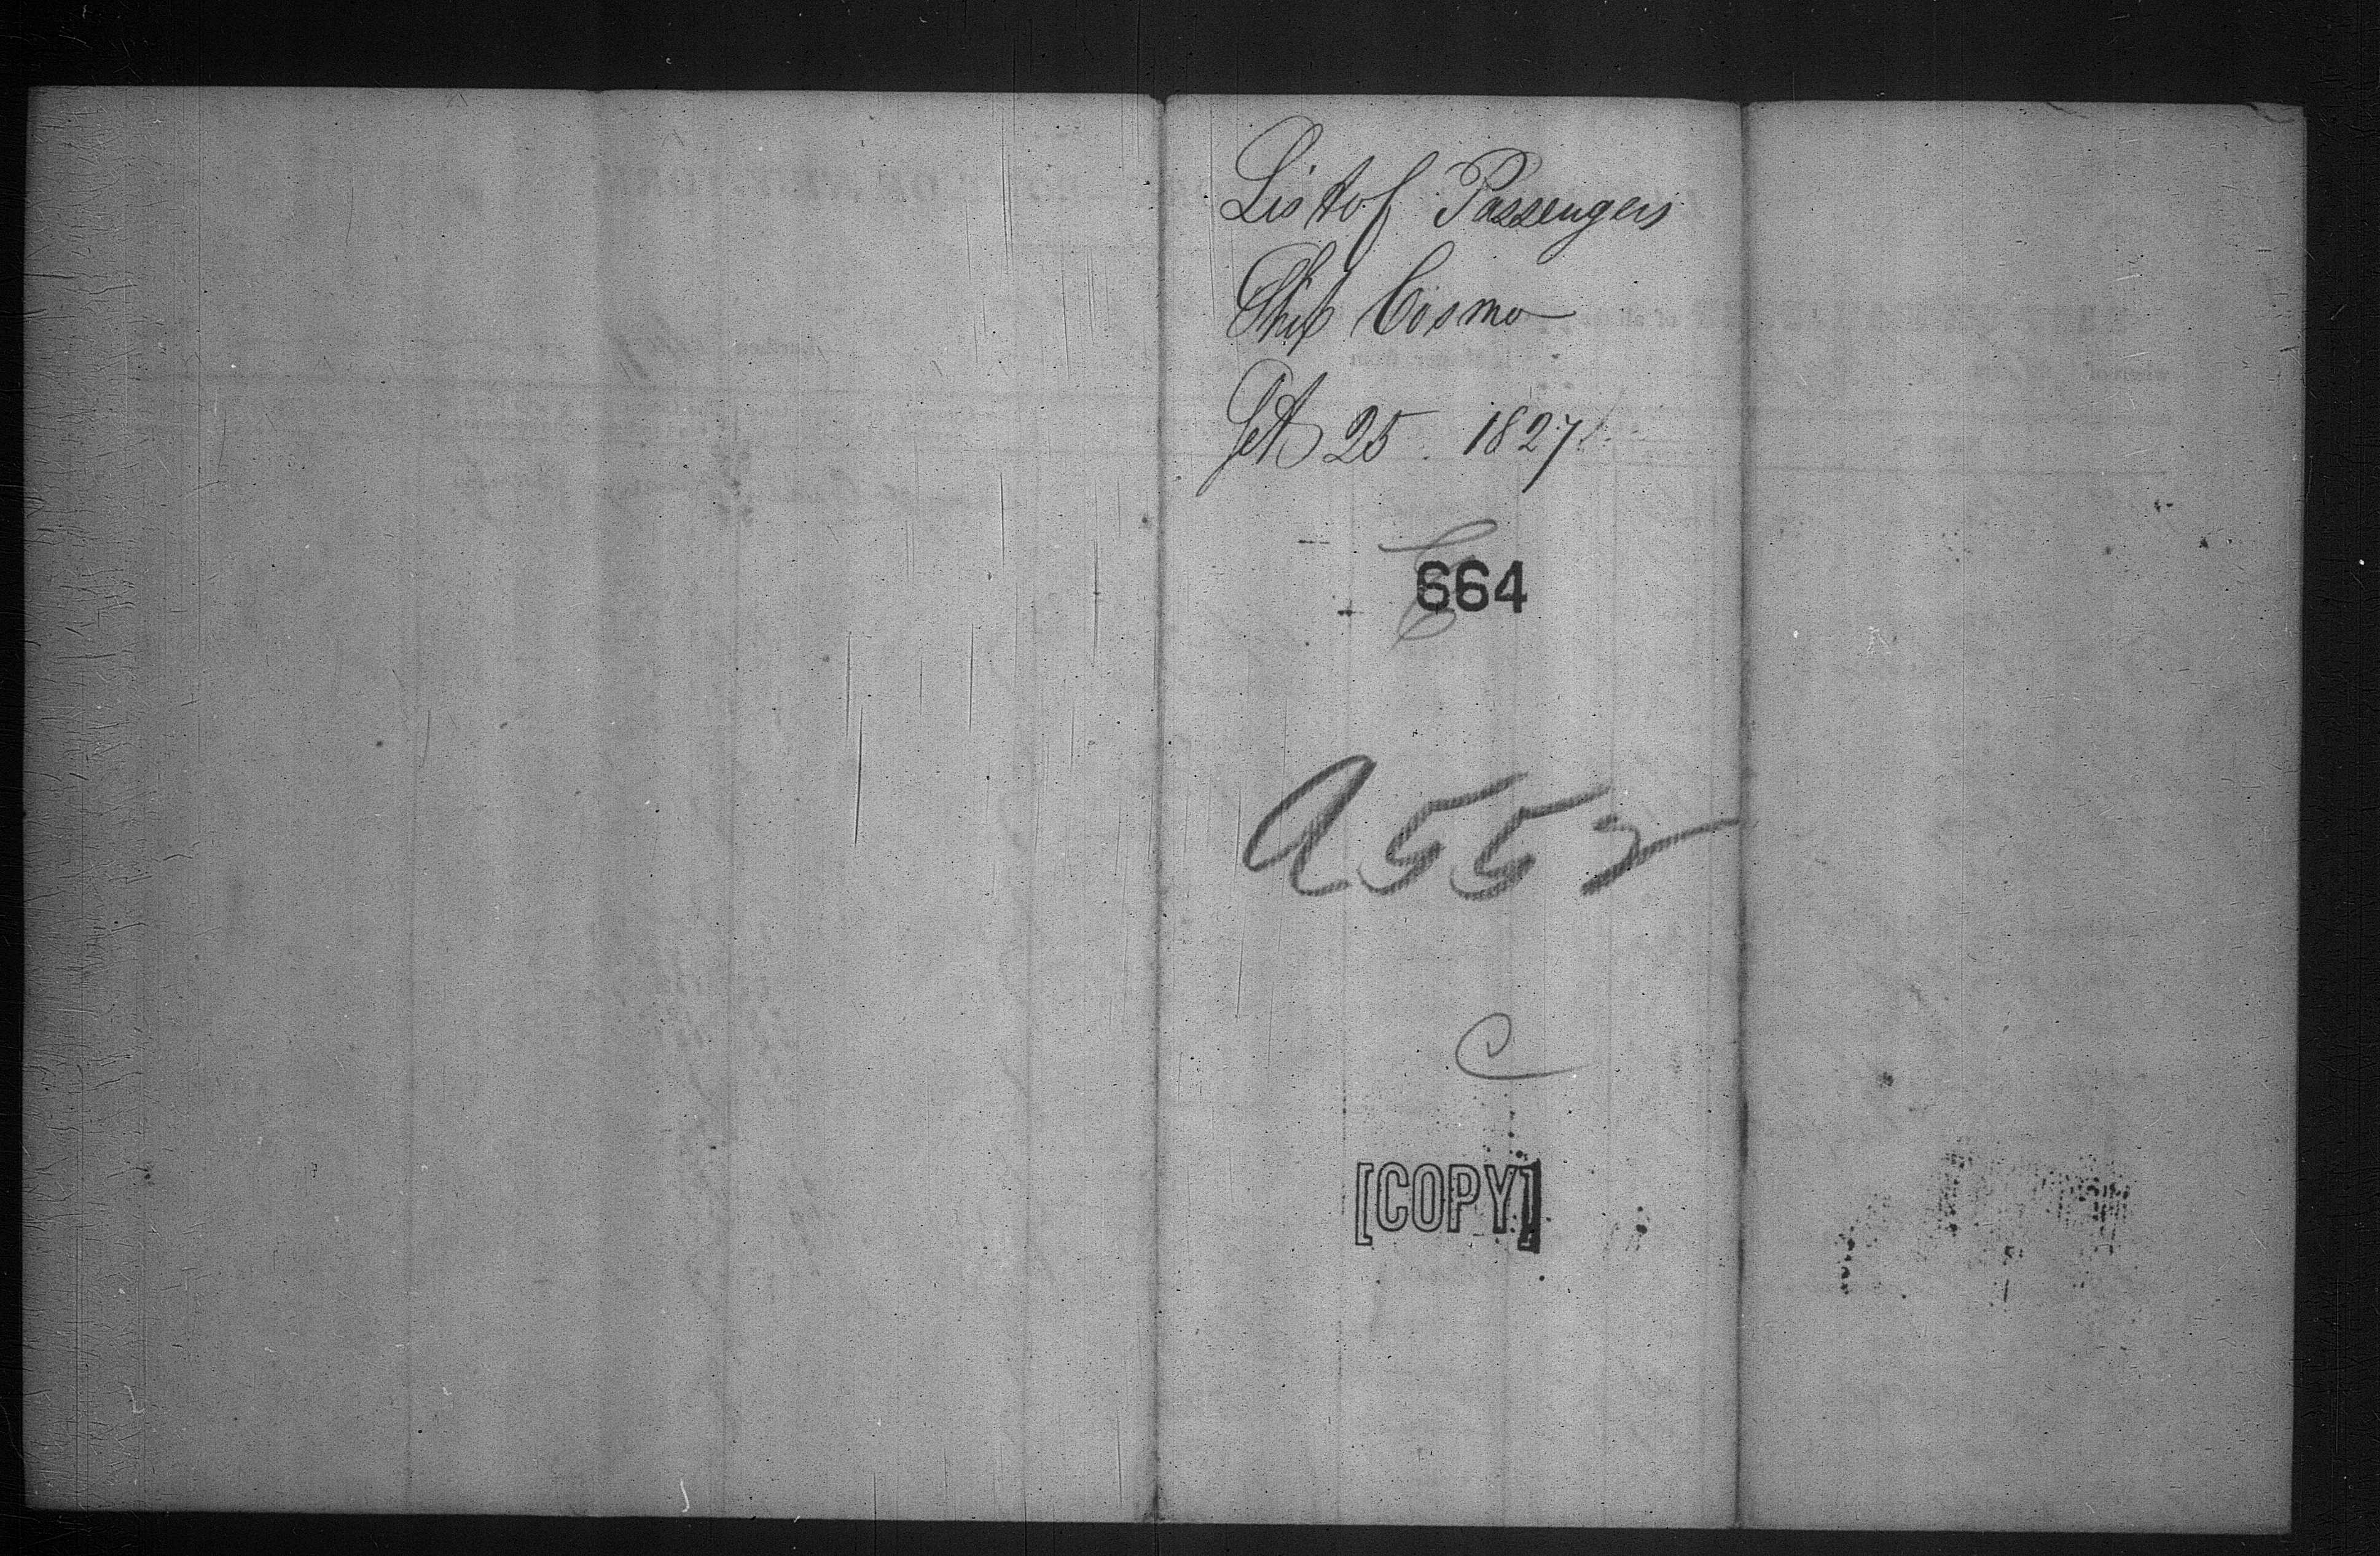 List of Passengers
Ship Cosmo
Set 25 1827
C
664
A552
C
[COPY]